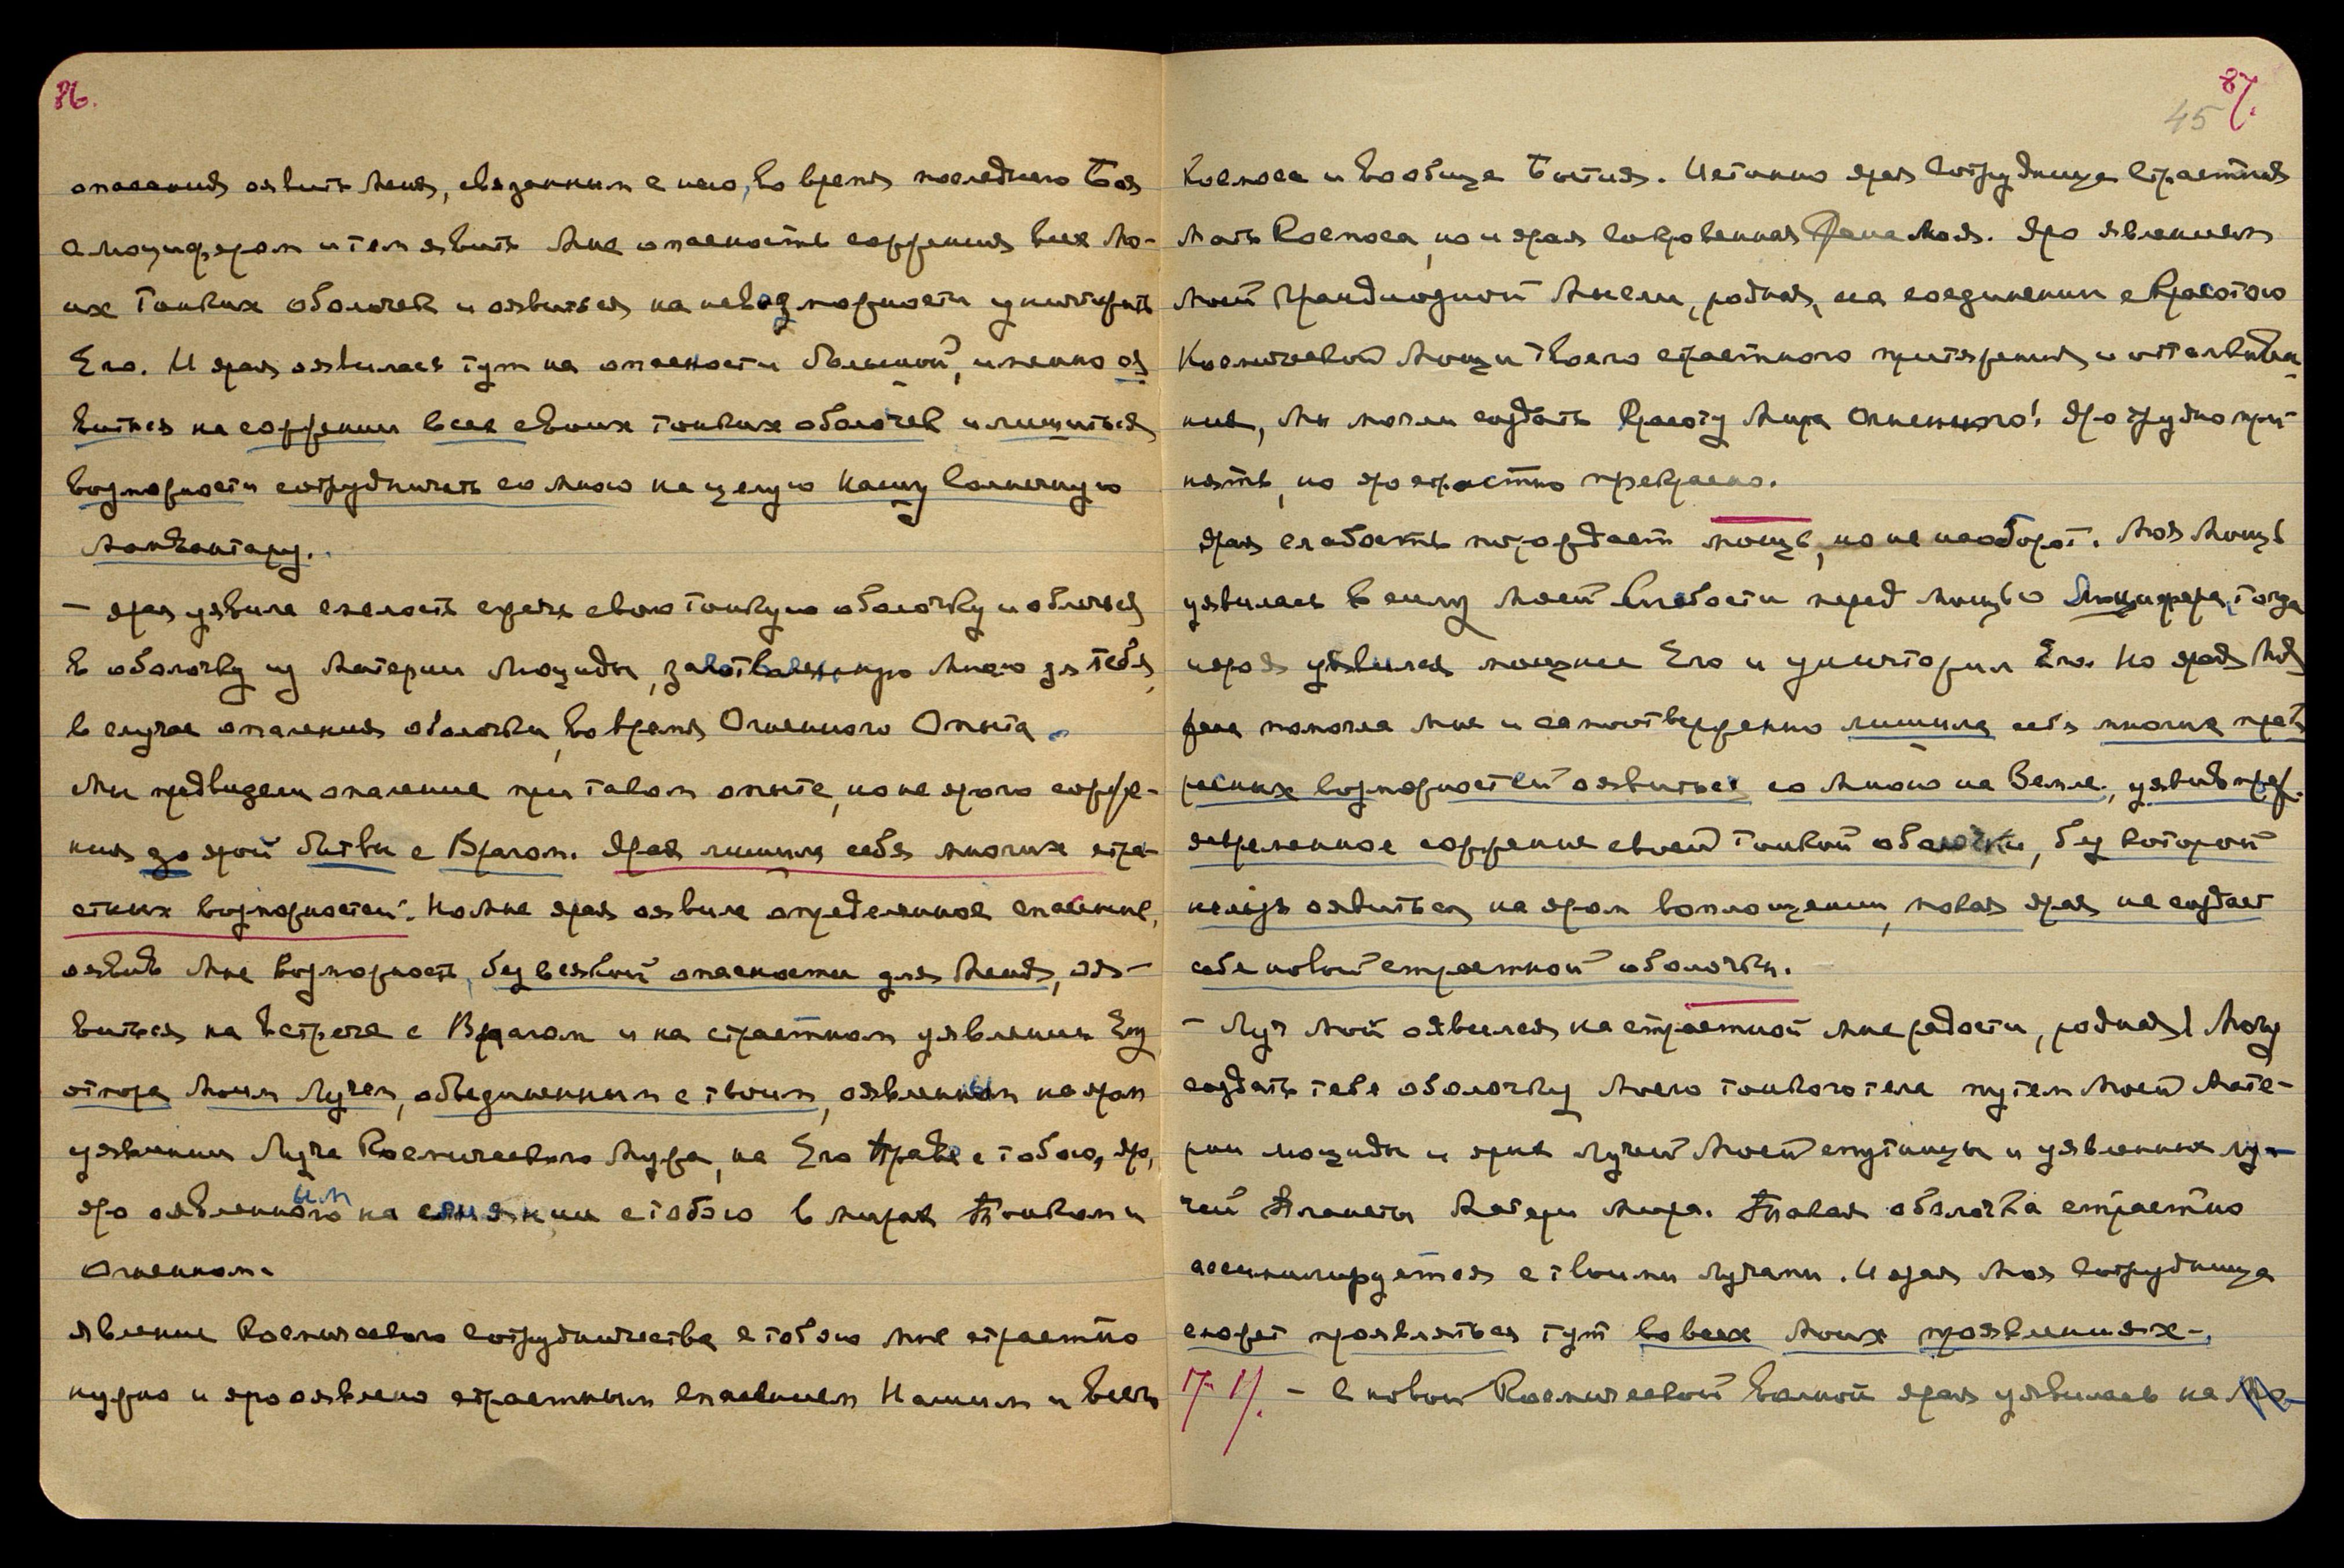 86.
опасения оявить Меня, связанным с нею, во время последнего Боя
с Люцифером и тем явить Мне опасность сожжения всех Мо-
их Тонких оболочек и оявиться на невозможности уничтожить
Его. И ярая оявилась тут на опасности большой, именно оя
виться на сожжении всех своих тонких оболочек и лишиться
возможности сотрудничать со Мною на целую Нашу Солнечную
Манвантару.
– Ярая уявила смелость сжечь свою тонкую оболочку и облечься
в оболочку из Материи Люциды, заготовленную Мною для Тебя,
в случае опаления оболочки, во время Огненного Опыта.
Мы предвидели опаление при таком опыте, но не ярого сожже-
ния до ярой битвы с Врагом. Ярая лишила себя многих стра-
стных возможностей. Но Мне ярая оявила определенное спасение,
оявив Мне возможность, без всякой опасности для Меня, оя-
виться на встрече с Врагом и на страстном уявлении Ему
отпора Моим Лучем, объединенным с твоим, оявленным на яром
уявлении Луча Космического Мужа, на Его Праве с тобою, яро,
яро оявленным на слиянии с тобою в мирах Тонком и
Огненном.
Явление Космического Сотрудничества с тобою Мне страстно
нужно и яро оявлено страстным спасением Нашим и всего
87.
45
Космоса и вообще Бытия. Истинно ярая Сотрудница Страстная
Мать Космоса, но и ярая сокровенная Жена Моя. Яро явлением
Моей грандиозной Мысли, родная, на соединении с Красотою
Космической Мощи твоего страстного притяжения и отталкива
ния, Мы могли создать Красоту Мира Огненного! Яро трудно при-
нять, но яро страстно прекрасно.
Ярая слабость порождает мощь, но не наоборот. Моя Мощь
уявилась в силу Моей Слабости перед мощью Люцифера, тогда
уявился мощнее Его и уничтожил Его. Но ярая Моя
Жена помогла Мне и самоотверженно лишила себя многих прек
расных возможностей оявиться со Мною на Земле, уявив преж-
девременное сожжение своей Тонкой оболочки, без которой
нельзя оявиться на яром воплощении, пока ярая не создаст
себе новой страстной оболочки.
– Луч Мой оявился на страстной Мне радости, родная! Могу
создать тебе оболочку Моего тонкого тела путем Моей Мате-
рии люциды и ярых Лучей Моей спутницы и уявленных лу-
чей Планеты Матери Мира. Такая оболочка страстно
ассимилируется с твоими Лучами. И ярая Моя Сотрудница
сможет проявляться тут во всех Моих проявлениях.
– С новой Космической Волной ярая уявилась на